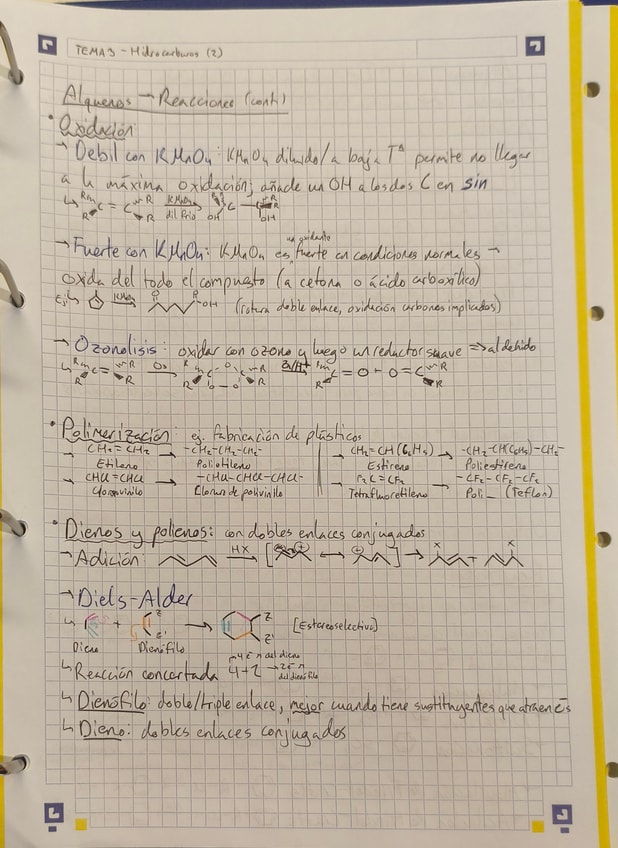 TEMA 3 - Hidrocarburos (2)
Alquenos → Reacciones (cont.)
• Oxidación
→ Debil con KMnO4: KMnO4 diluido/a baja Tª permite no llegar
a la máxima oxidación; añade un OH a los dos C en sin
↳ R C = C R R KMnO4 dil frio R C - C R R OH OH
→ Fuerte con KMnO4: KMnO4 es un oxidante fuerte en condiciones normales →
oxida del todo el compuesto (a cetona o ácido carboxílico)
Ej: ↳ KMnO4 O O OH (rotura doble enlace, oxidación carbonos implicados)
→ Ozonolisis: oxidar con ozono y luego un reductor suave ⇒ aldehido
↳ R R C = C R R O3 R R C O C R R O - O Zn/H+ R R C = O + O = C R R
• Polimerización: ej. fabricación de plásticos
• CH2 = CH2 → -CH2-CH2-CH2- • CH2=CH(C6H5) → -CH2-CH(C6H5)-CH2-
Etileno Polietileno Estireno Poliestireno
• CHCl=CHCl → -CHCl-CHCl-CHCl- • F2C=CF2 → -CF2-CF2-CF2
Clorovinilo Cloruro de polivinilo Tetrafluoretileno Poli_ (Teflon)
• Dienos y polienos: con dobles enlaces conjugados
→ Adición: HX → [ ⊕ ↔ ⊕ ] → X + X
→ Diels-Alder
↳ + Z Z' → Z Z' [Estereoselectiva]
Dieno Dienófilo
↳ Reacción concertada 4+2 → 4 e⁻ π del dieno → 2 e⁻ π del dienófilo
↳ Dienófilo: doble/triple enlace, mejor cuando tiene sustituyentes que atraen e⁻s
↳ Dieno: dobles enlaces conjugados